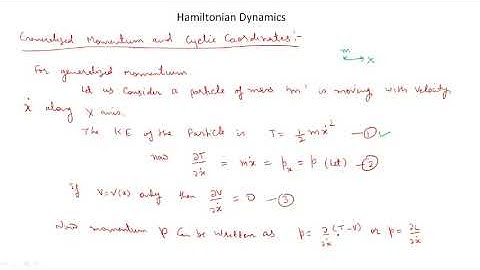 Hamiltonian Dynamics
Generalized Momentum and Cyclic Coordinates:-
m
x
For generalized momentum
Let us consider a particle of mass 'm' is moving with velocity
ẋ along X axis.
The KE of the Particle is T = 1/2 mẋ² —①✓
now ∂T/∂ẋ = mẋ = pₓ = p (let) —②
if V=V(x) only then ∂V/∂ẋ = 0 —③
Now momentum p can be written as p = ∂/∂ẋ (T-V) or p = ∂L/∂ẋ